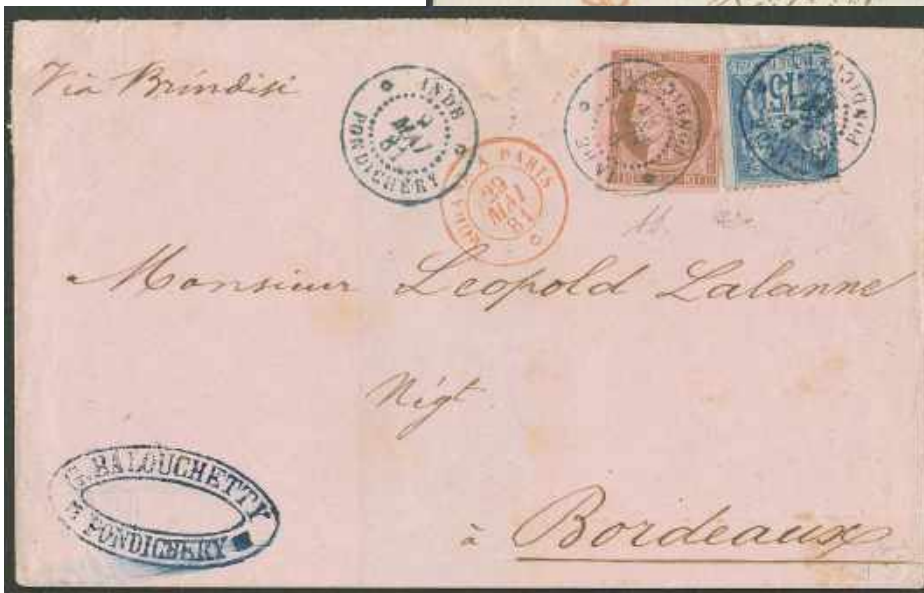 Via Brindisi
INDE
MAI
81
PONDICHÉRY
A PARIS
MAI
81
15
Monsieur Leopold Lalanne
Négt.
à Bordeaux
G. BALOUCHETTY
PONDICHERY